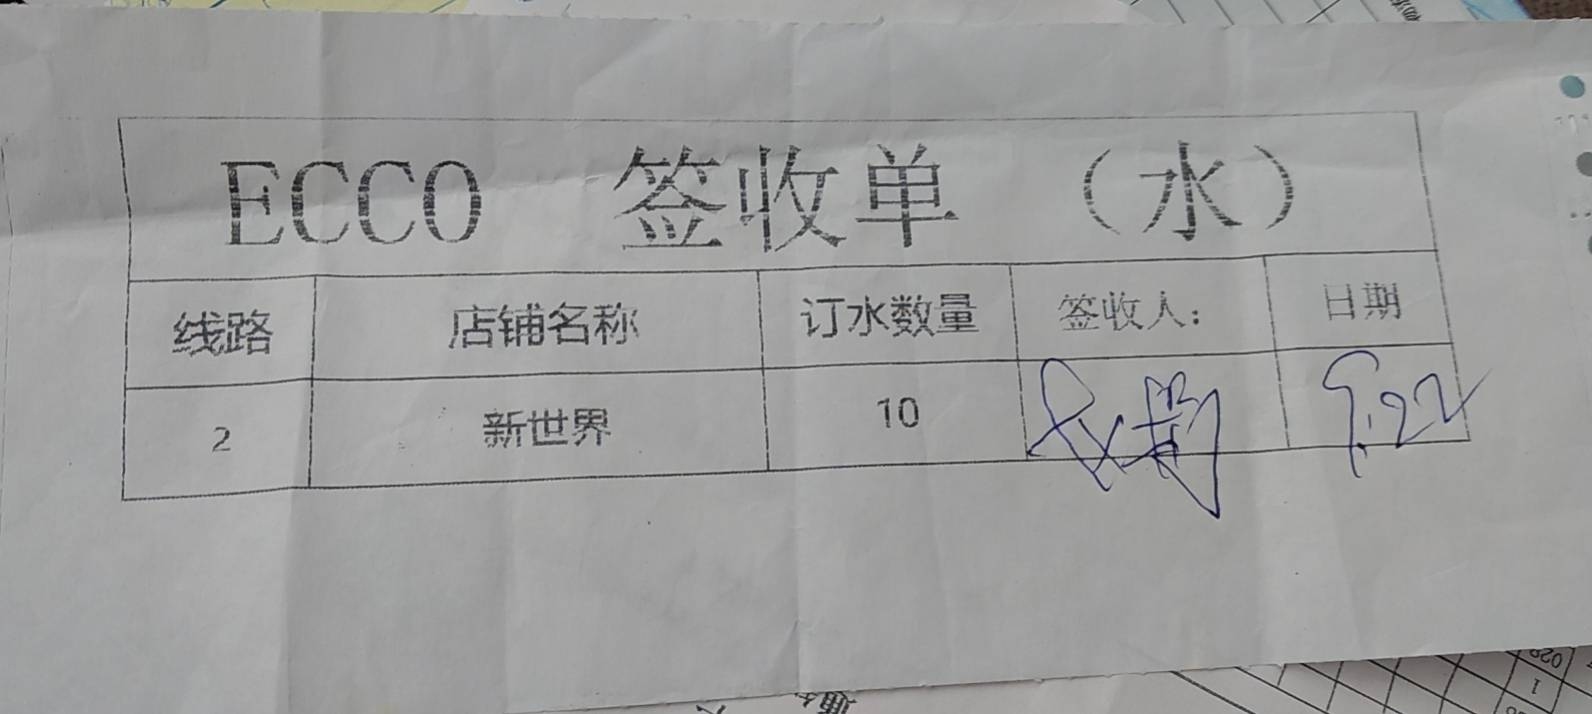 ECCO 签收单 （水）
线路 店铺名称 订水数量 签收人： 日期
2 新世界 10 9.22